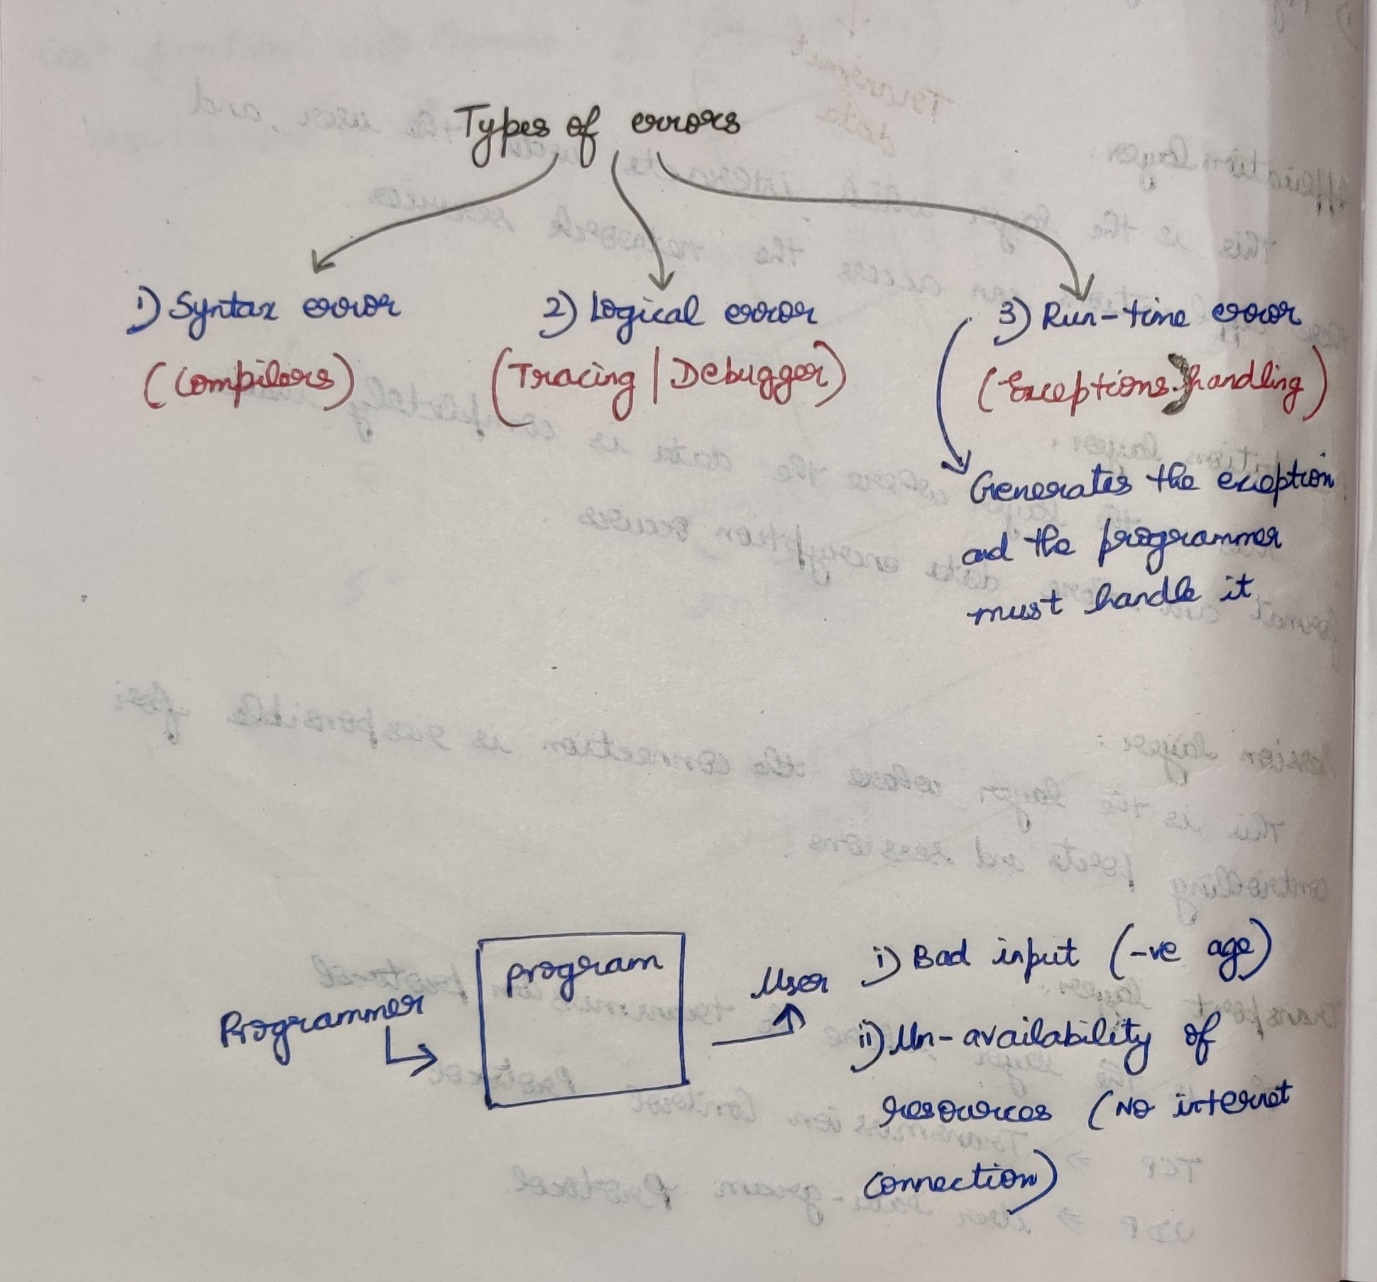 Types of errors
1) Syntax error
(Compilers)
2) Logical error
(Tracing | Debugger)
3) Run-time error
(Exceptions handling)
Generates the exception
and the programmer
must handle it
Programmer
program
User
i) Bad input (-ve age)
ii) Un-availability of
resources (No internet
connection)